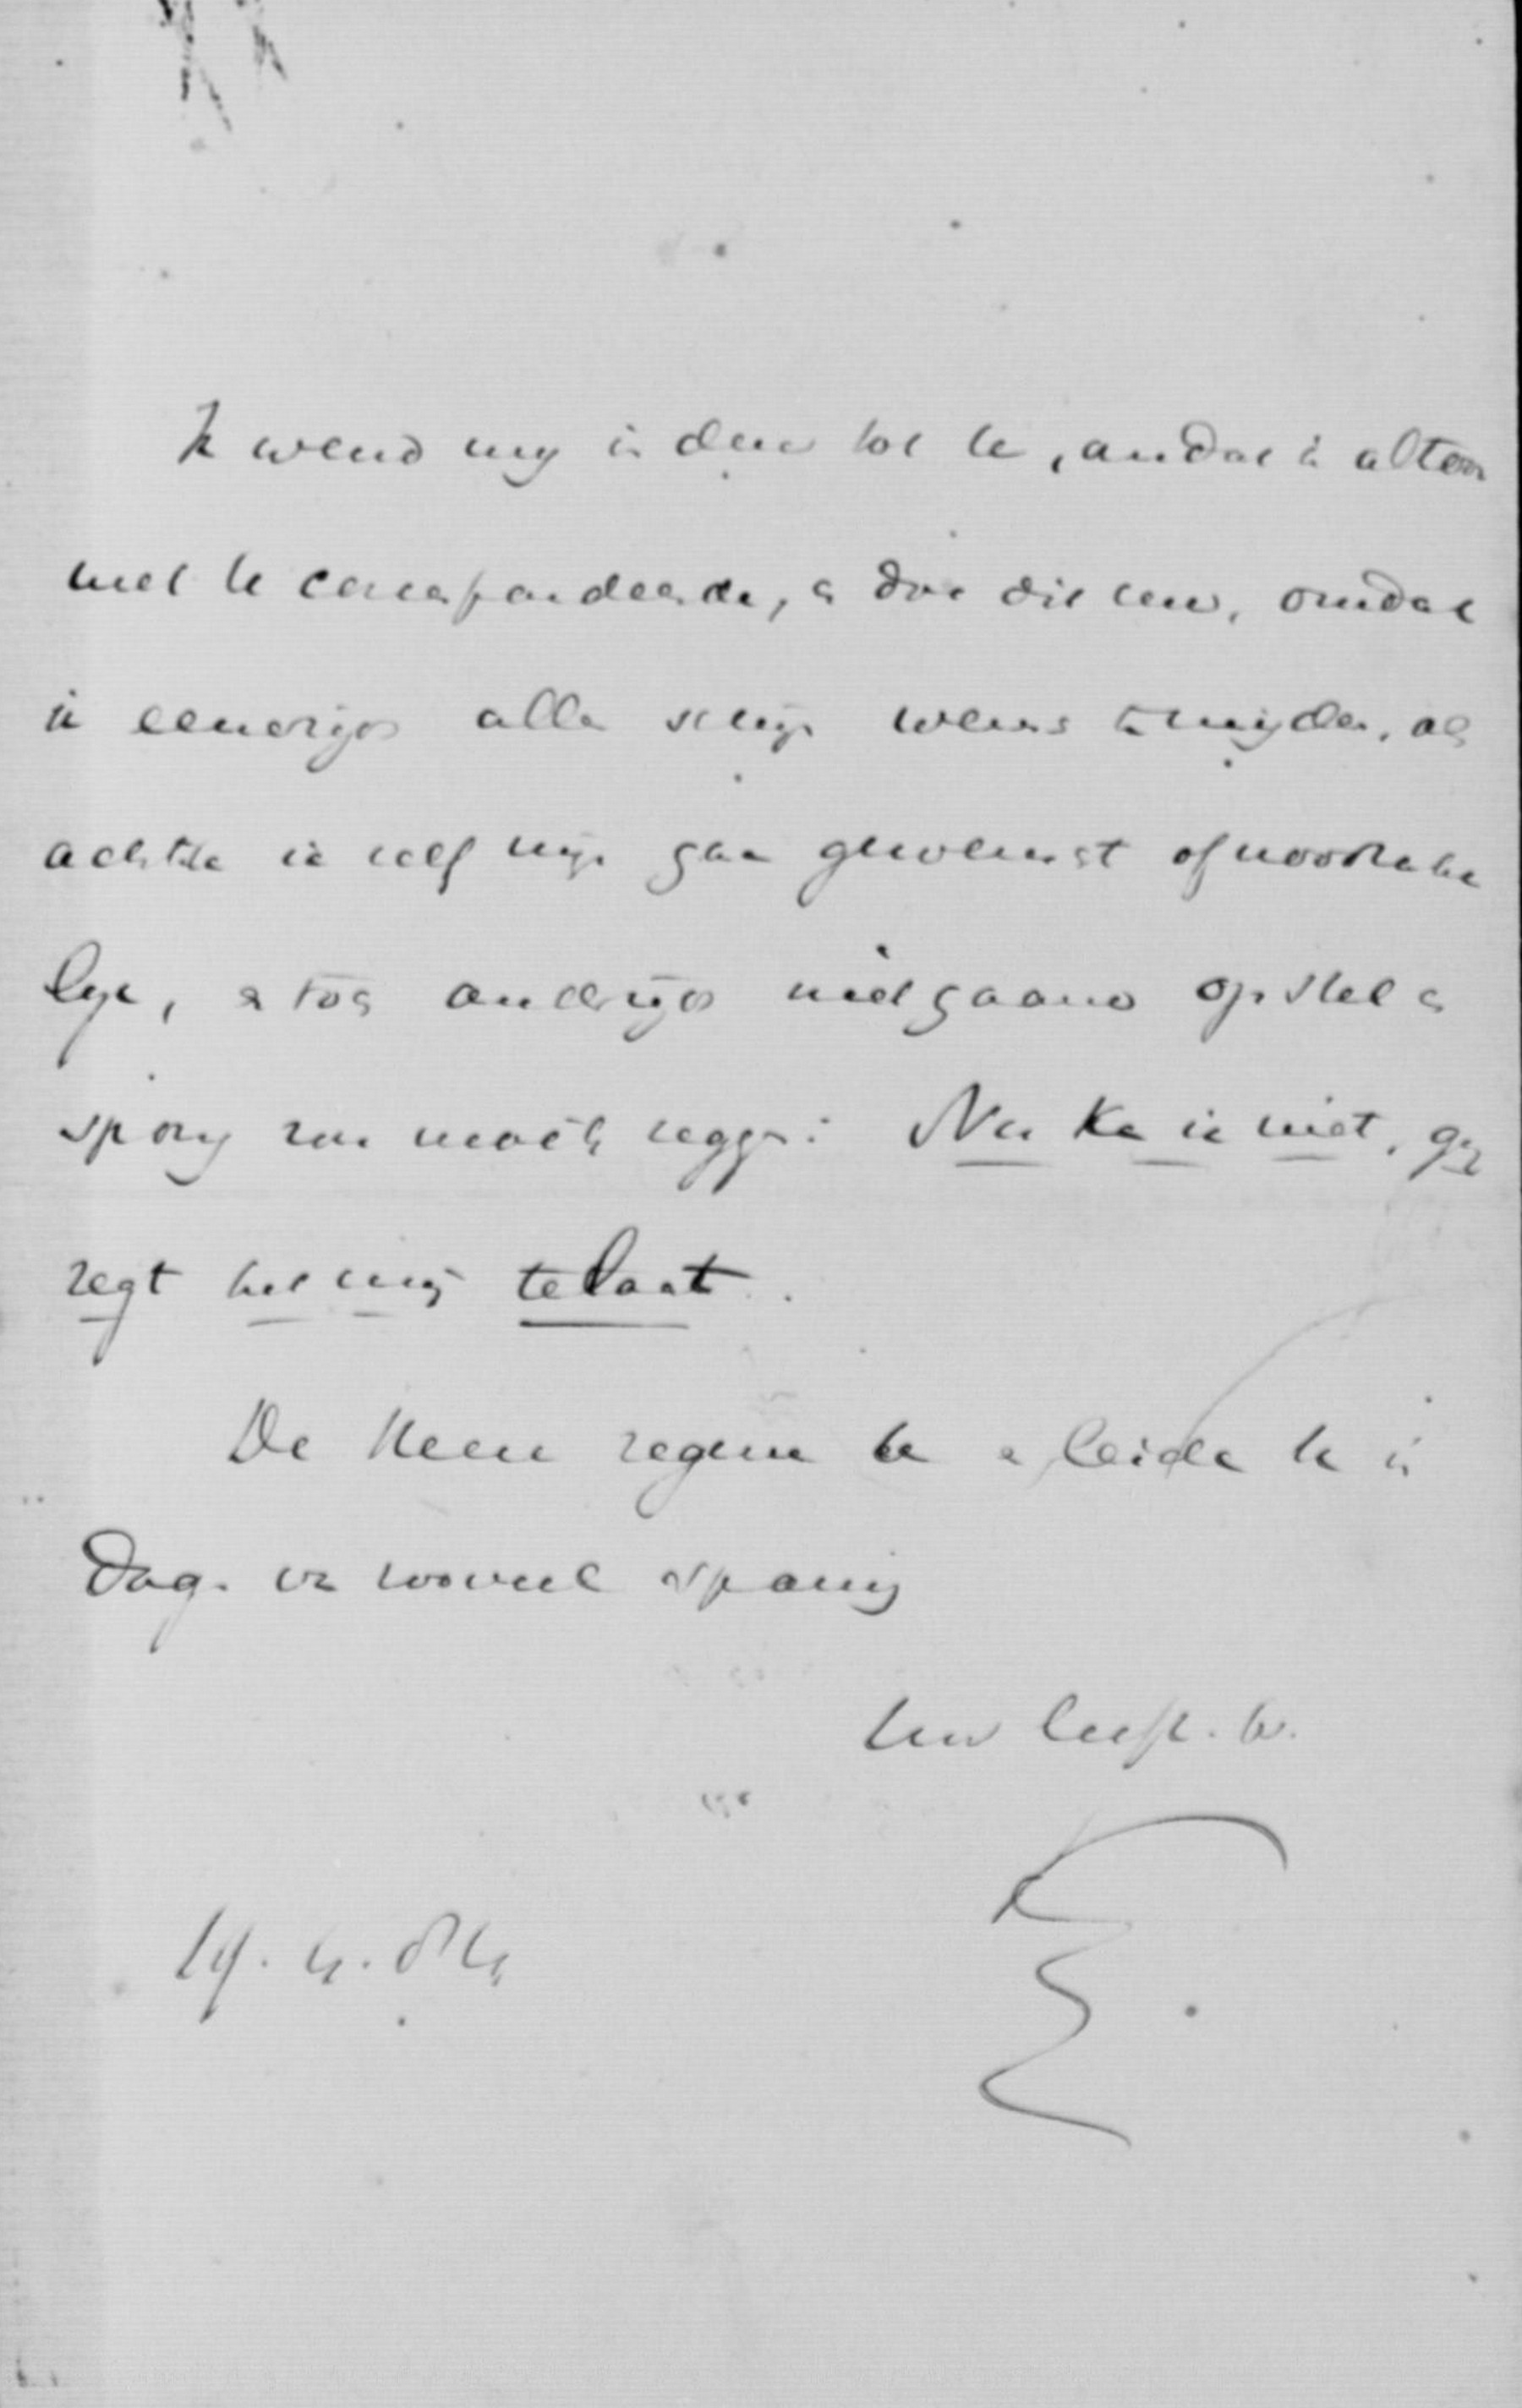 Ik wend mij in deze tot U, omdat ik altoos
met U correspondeerde, en doe dit nu, omdat
ik eenerzijds alle wens te mijden, als
achtte ik zelf mijn gaan gewenst of noodzake
lijk, en toch anderzijds niet gaarne op stel en
sprong zou moeten zeggen: Nu kan ik niet, gij
zegt het mij te laat.
De Heere zegene U en leide U in
dagen van zooveel spanning
Uw
19.4.84